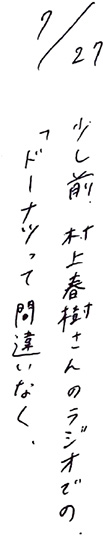 7/27
少し前、村上春樹さんのラジオでの、
「ドーナツって間違いなく、